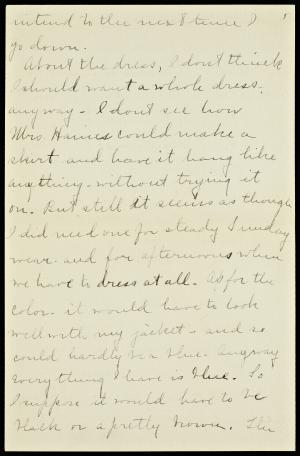 intend to the next time I
go down.
About the dress, I don't think
I should want a whole dress,
anyway - I don't see how
Mrs. Haines could make a
skirt and have it hang like
anything - without trying it
on. But still it seems as though
I did need one for steady Sunday
wear - and for afternoons when
we have to dress at all. As for the
color - it would have to look
well with my jacket - and so
could hardly be a blue. Anyway
everything I have is blue. So
I suppose it would have to be
black or a pretty brown. The